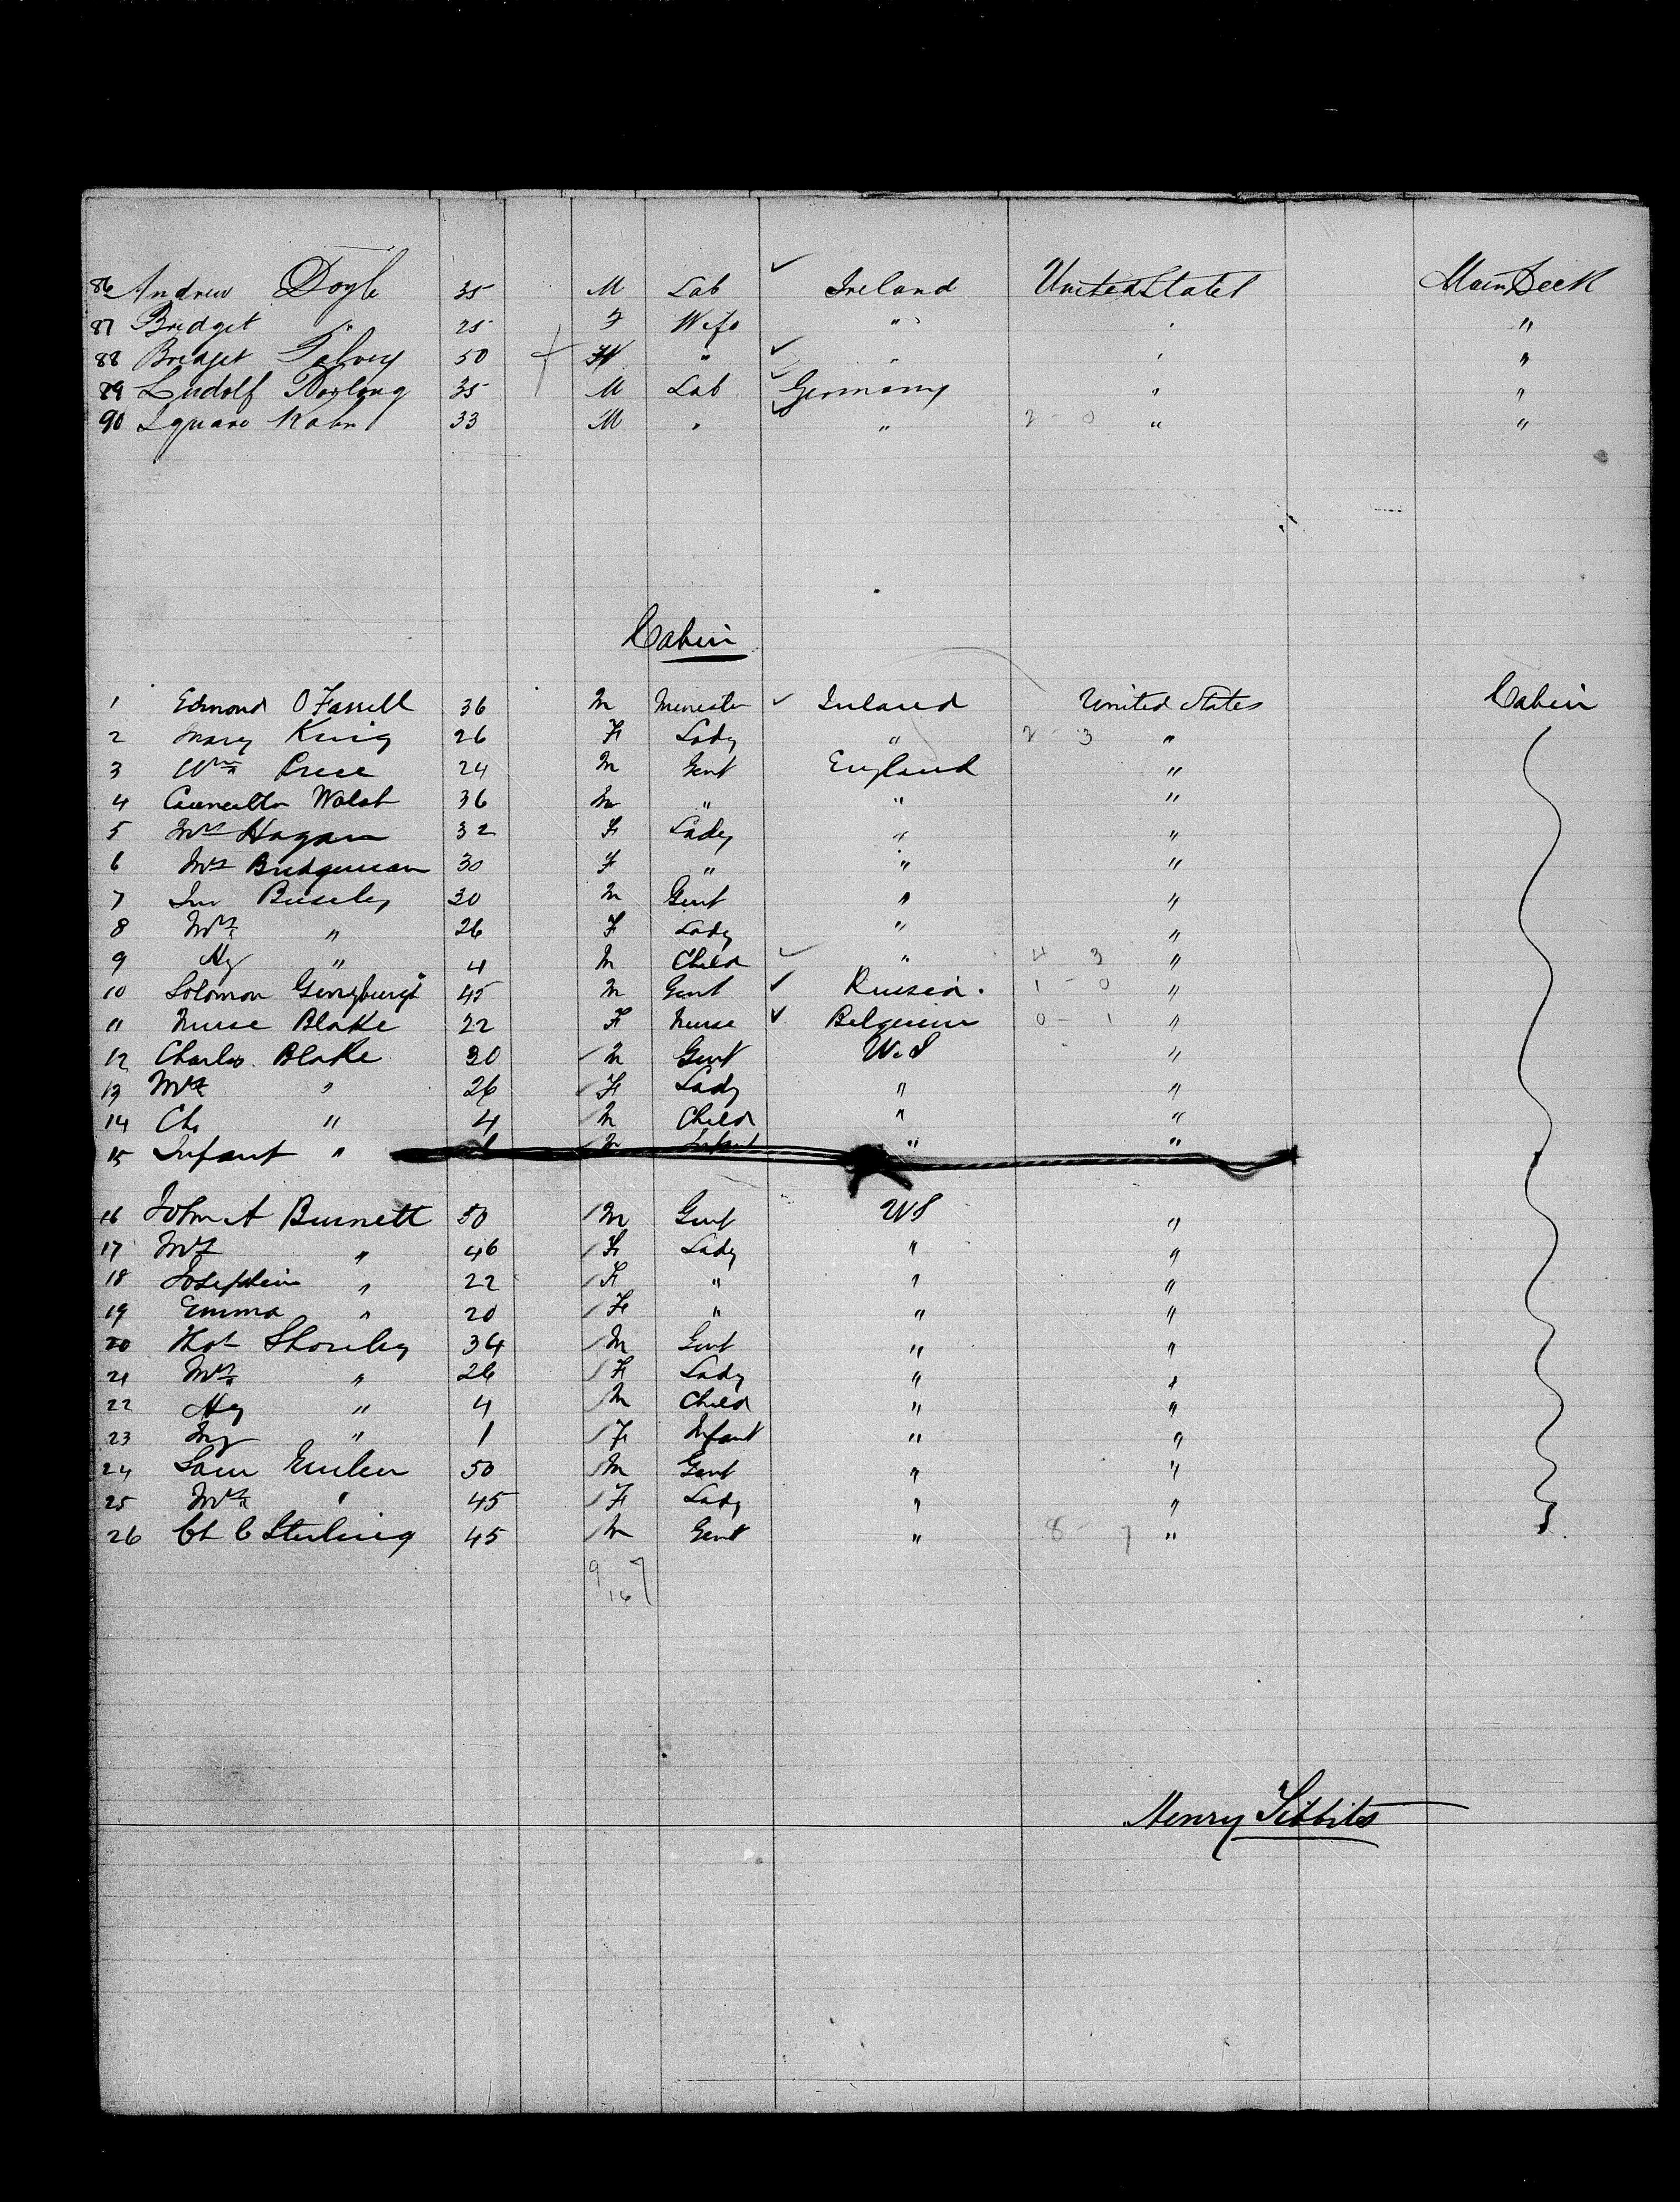 86 Andrew Doyle 35 M Lab ✓ Ireland United States Main Deck
87 Bridget " 25 F Wife " " "
88 Bridget 50 F " ✓ " " "
89 Ludolf 35 M Lab ✓ Germany " "
90 Kahn 33 M " ✓ " 2 - 0 " "
Cabin
1 Edmond O'Farrell 36 M Minister ✓ Ireland United States Cabin
2 Mary King 26 F Lady " 2 - 3 "
3 Wm Price 24 M Gent England "
4 Walsh 36 M " " "
5 Mrs Hagan 32 F Lady " "
6 Mrs Bridgeman 30 F " " "
7 Jno 30 M Gent " "
8 Mrs " 26 F Lady " "
9 Hy " 4 M Child ✓ " 4 3 "
10 Solomon 45 M Gent ✓ Russia. 1 - 0 "
11 Nurse Blake 22 F Nurse ✓ Belgium 0 - 1 "
12 Charles Blake 30 M Gent U.S "
13 Mrs " 26 F Lady " "
14 Ch. " 4 M Child " "
15 Infant " M Infant " "
16 John A Burnett 50 M Gent US "
17 Mrs " 46 F Lady " "
18 Josephine " 22 F " " "
19 Emma " 20 F " " "
20 Thos 34 M Gent " "
21 Mrs " 26 F Lady " "
22 Hy " 4 M Child " "
23 " 1 F Infant " "
24 50 M Gent " "
25 Mrs " 45 F Lady " "
26 Ch C Sterling 45 M Gent " 8 - 7 "
9 7
16
Henry Tibbits